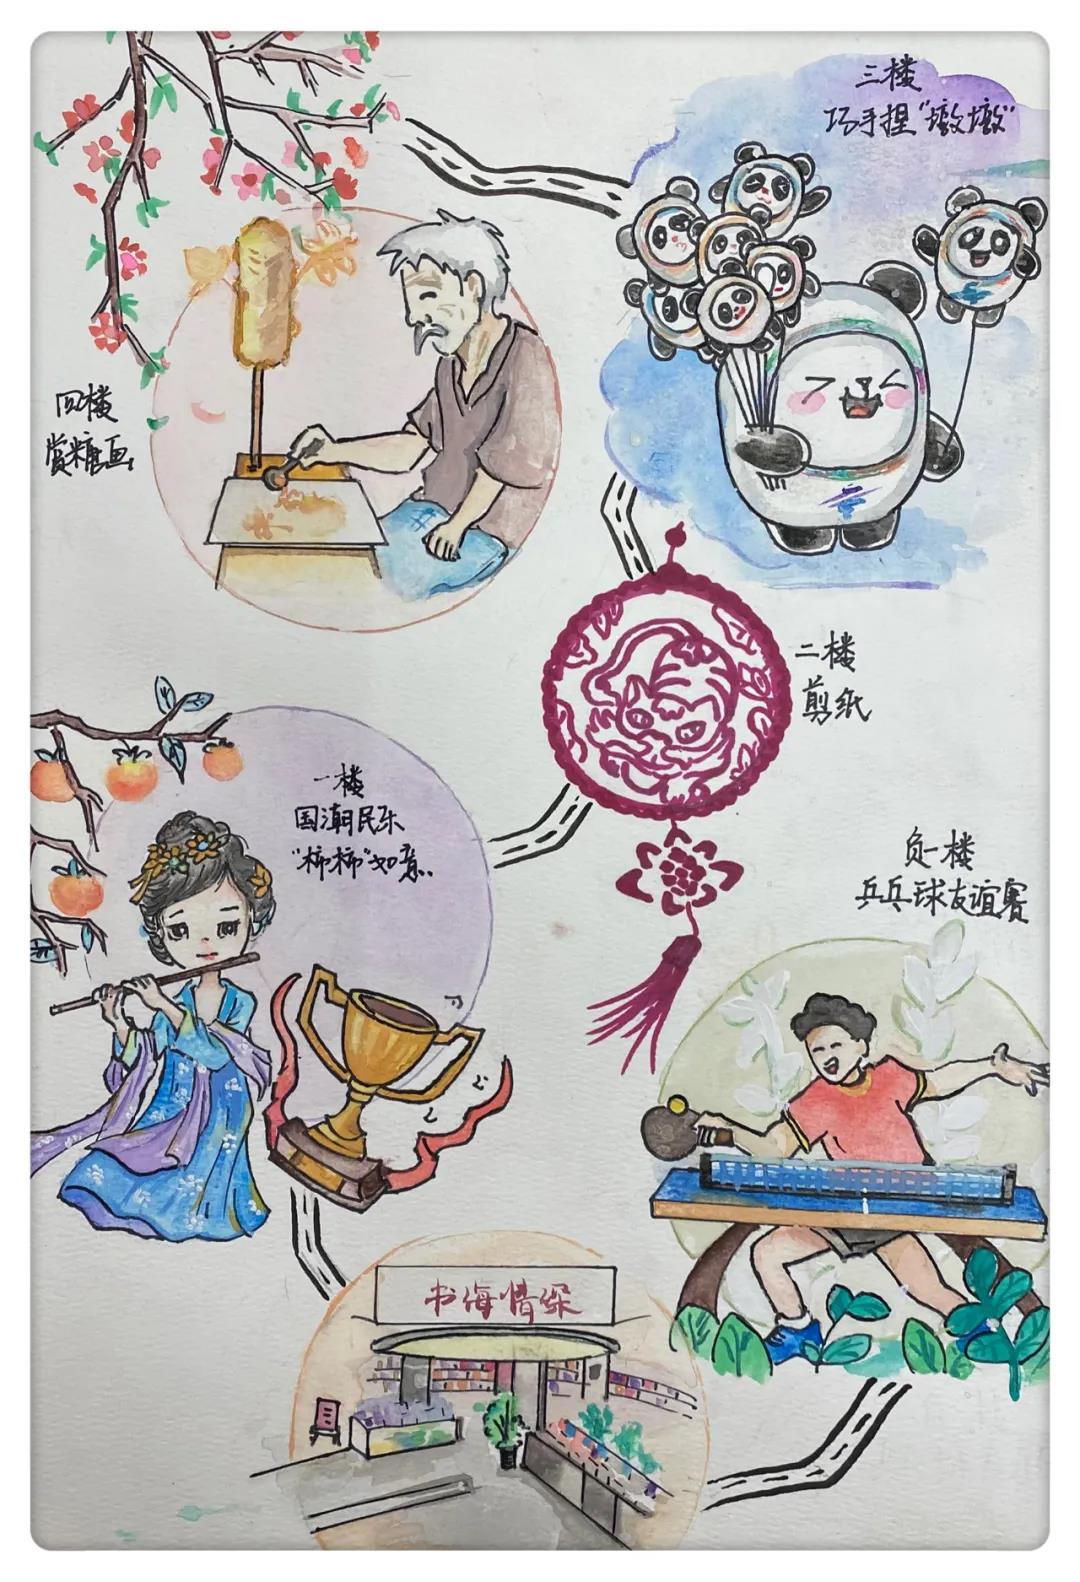 三楼
巧手捏"墩墩"
四楼
赏糖画
二楼
剪纸
一楼
国潮民乐
"柿柿"如意..
负一楼
乒乓球友谊赛
书海情深